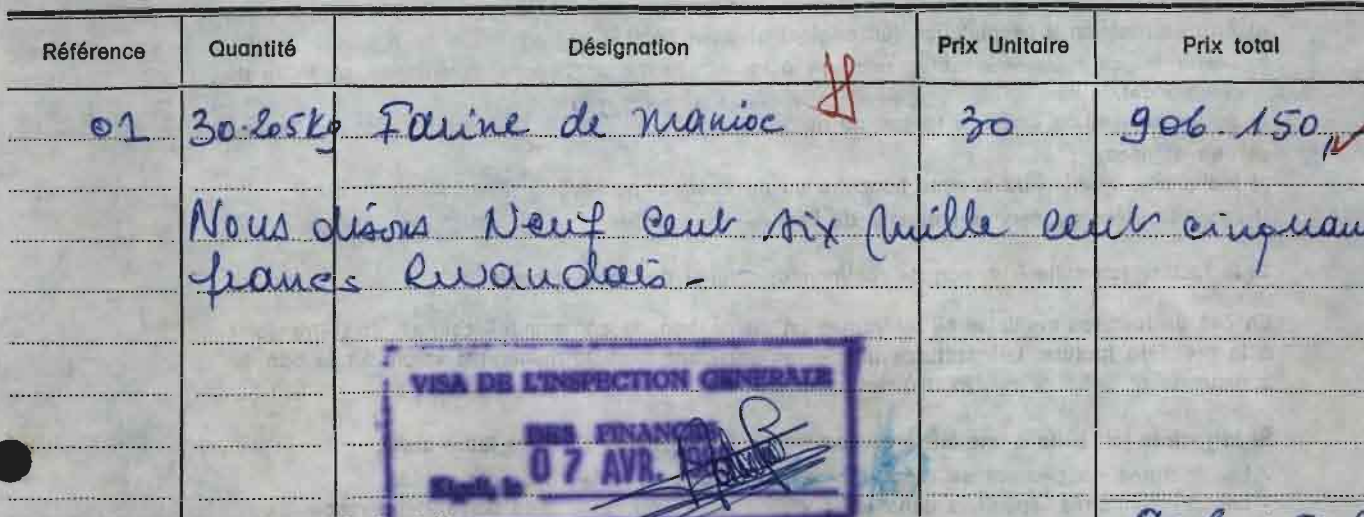 Référence Quantité Désignation Prix Unitaire Prix total
01 30.205kg Farine de manioc 30 906.150
Nous disons Neuf cent six mille cent cinquan
francs Rwandais -
VISA DE L'INSPECTION GENERALE
DES FINANCES
Kigali, le 07 AVR.